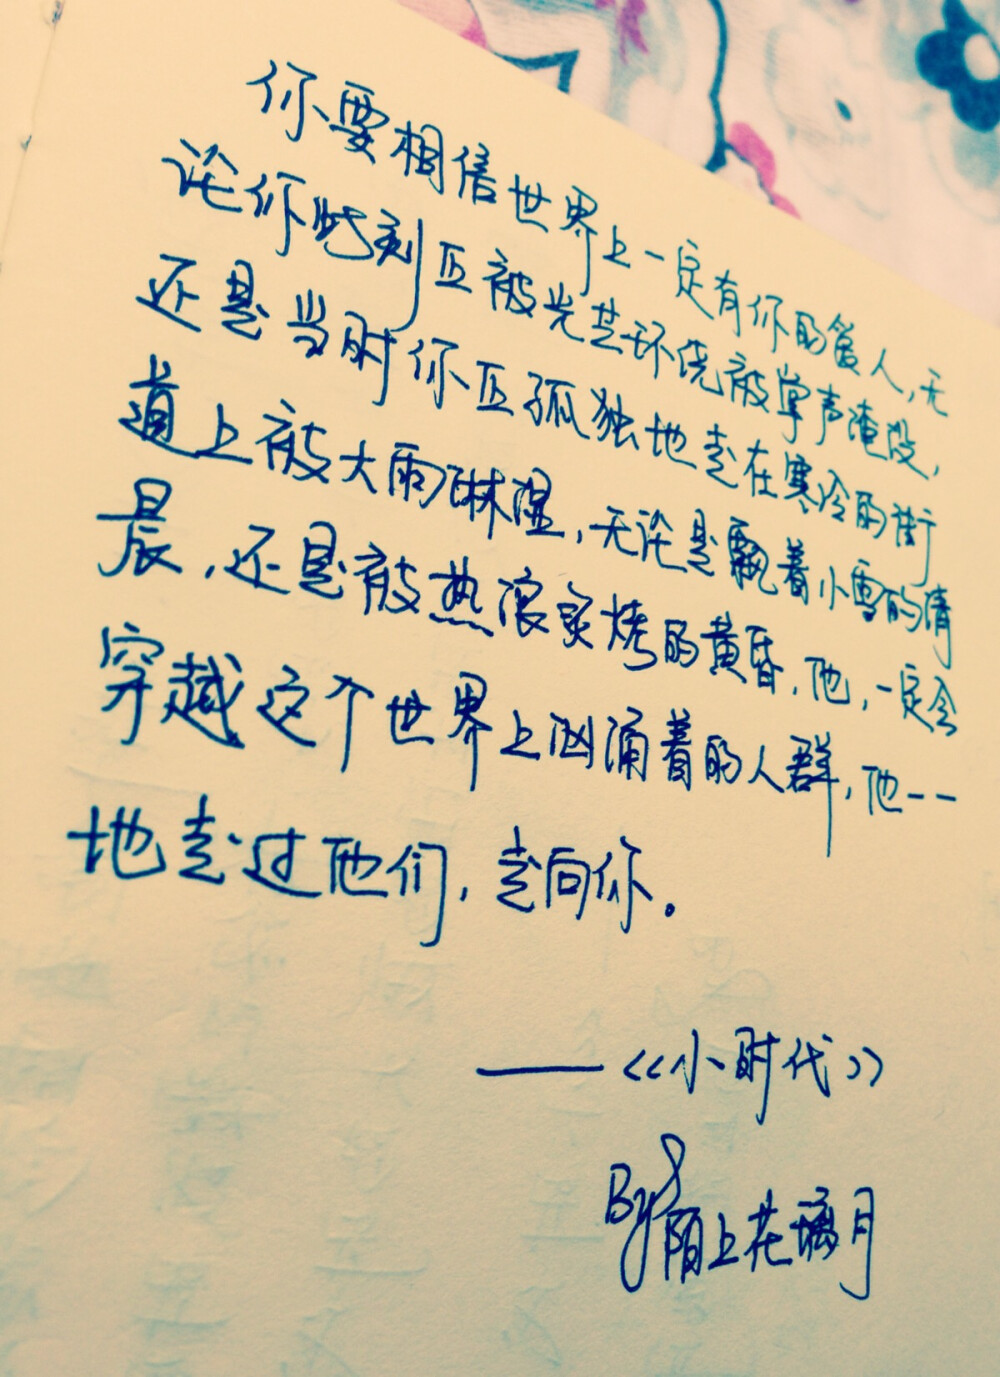 你要相信世界上一定有你的爱人,无
论你此刻正被光芒环绕被掌声淹没,
还是当时你正孤独地走在寒冷的街
道上被大雨淋湿,无论是飘着小雪的清
晨,还是被热浪炙烤的黄昏,他,一定会
穿越这个世界上汹涌着的人群,他一一
地走过他们,走向你。
——《小时代》
By 陌上花璃月